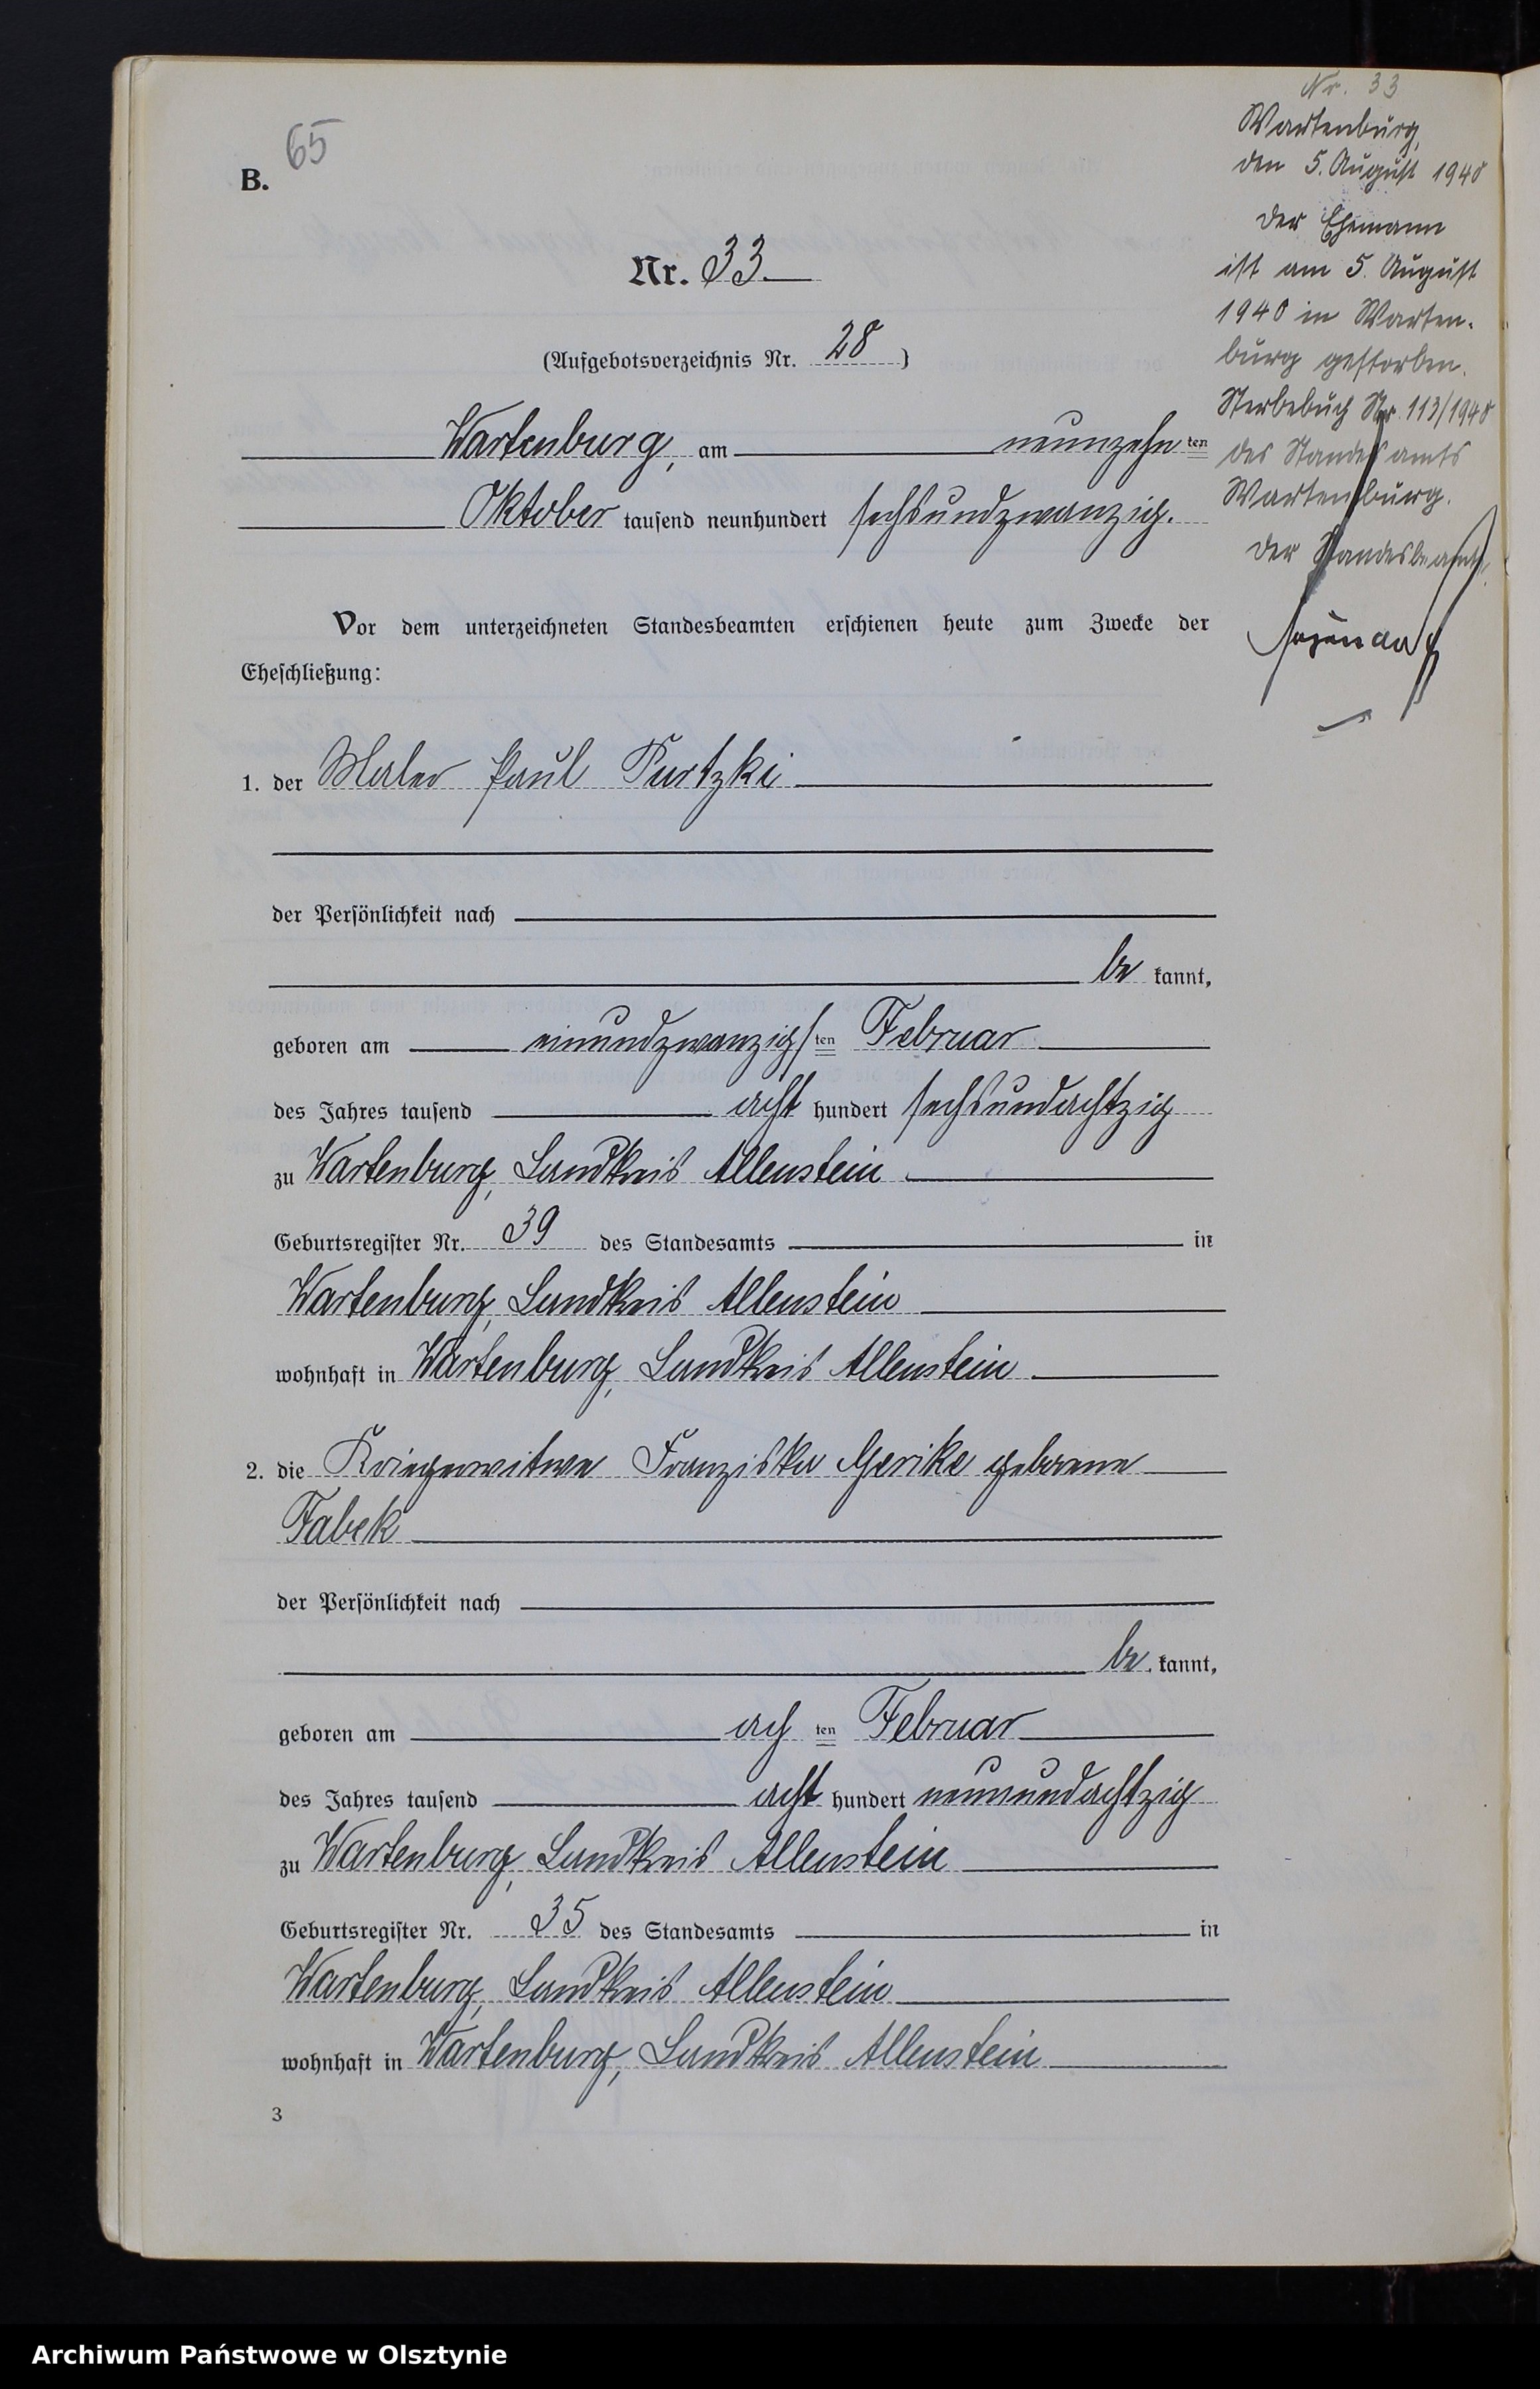 65
B.
Nr. 33
(Aufgebotsverzeichnis Nr. 28)
Wartenburg, am neunzehn ten
Oktober tausend neunhundert sechsundzwanzig.
Vor dem unterzeichneten Standesbeamten erschienen heute zum Zwecke der
Eheschließung:
1. der Maler Paul Purtzki
der Persönlichkeit nach
be kannt,
geboren am einundzwanzigs ten Februar
des Jahres tausend acht hundert sechsundachtzig
zu Wartenburg, Landkreis Allenstein
Geburtsregister Nr. 39 des Standesamts in
Wartenburg, Landkreis Allenstein
wohnhaft in Wartenburg, Landkreis Allenstein
2. die Kriegerwitwe Franziska Gerike geborene
Fabek
der Persönlichkeit nach
be kannt,
geboren am ach ten Februar
des Jahres tausend acht hundert neunundachtzig
zu Wartenburg, Landkreis Allenstein
Geburtsregister Nr. 35 des Standesamts in
Wartenburg, Landkreis Allenstein
wohnhaft in Wartenburg, Landkreis Allenstein
3
Nr. 33
Wartenburg,
den 5. August 1940
Der Ehemann
ist am 5. August
1940 in Warten-
burg gestorben.
Sterbebuch Nr. 113/1940
des Standesamts
Wartenburg.
Der Standesbeamte.
Archiwum Państwowe w Olsztynie